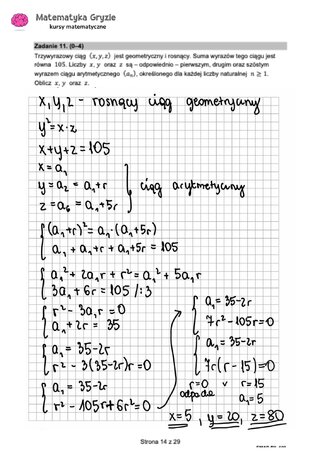 Matematyka Gryzie
kursy matematyczne
Zadanie 11. (0–4)
Trzywyrazowy ciąg (x, y, z) jest geometryczny i rosnący. Suma wyrazów tego ciągu jest
równa 105. Liczby x, y oraz z są – odpowiednio – pierwszym, drugim oraz szóstym
wyrazem ciągu arytmetycznego (aₙ), określonego dla każdej liczby naturalnej n ≥ 1.
Oblicz x, y oraz z.
x, y, z - rosnący ciąg geometryczny
y² = x·z
x+y+z = 105
x = a₁
y = a₂ = a₁+r
z = a₆ = a₁+5r
ciąg arytmetyczny
(a₁+r)² = a₁·(a₁+5r)
a₁ + a₁+r + a₁+5r = 105
a₁² + 2a₁r + r² = a₁² + 5a₁r
3a₁ + 6r = 105 /:3
r² - 3a₁r = 0
a₁ + 2r = 35
a₁ = 35-2r
r² - 3(35-2r)r = 0
a₁ = 35-2r
r² - 105r + 6r² = 0
a₁ = 35-2r
7r² - 105r = 0
a₁ = 35-2r
7r(r-15) = 0
r=0 v r=15
odpada a₁=5
x=5, y=20, z=80
Strona 14 z 29